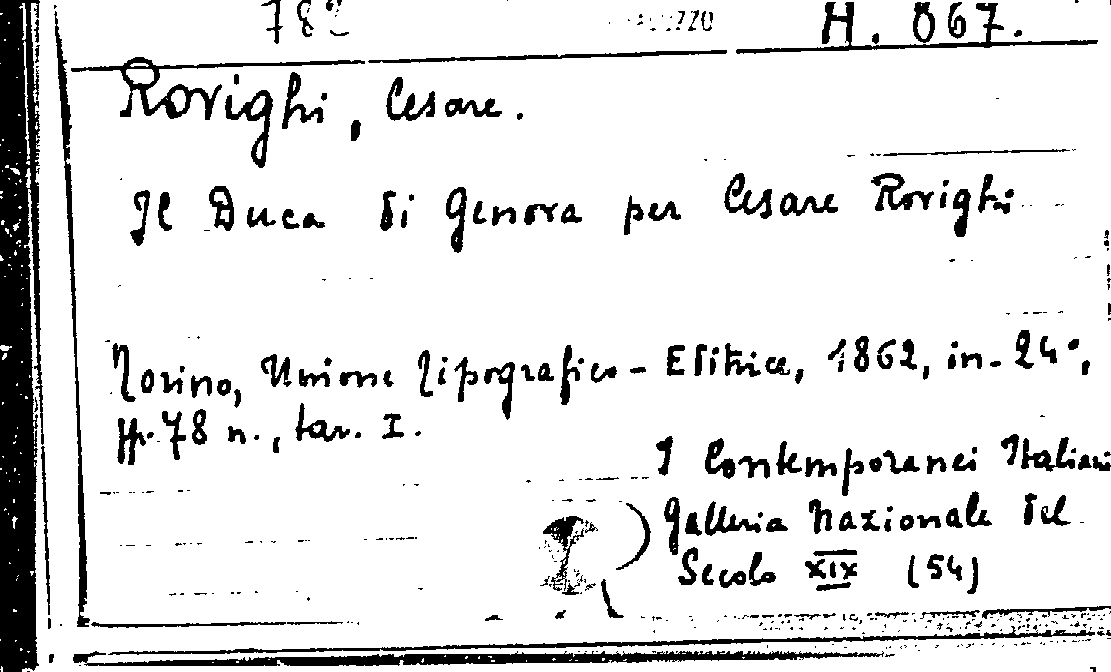 782 H. 867.
Rovighi, Cesare.
Il Duca di Genova per Cesare Rovighi
Torino, Unione Tipografico-Editrice, 1862, in-24°,
pp. 78 n., tav. I.
I Contemporanei Italiani
Galleria Nazionale del
Secolo XIX (54)